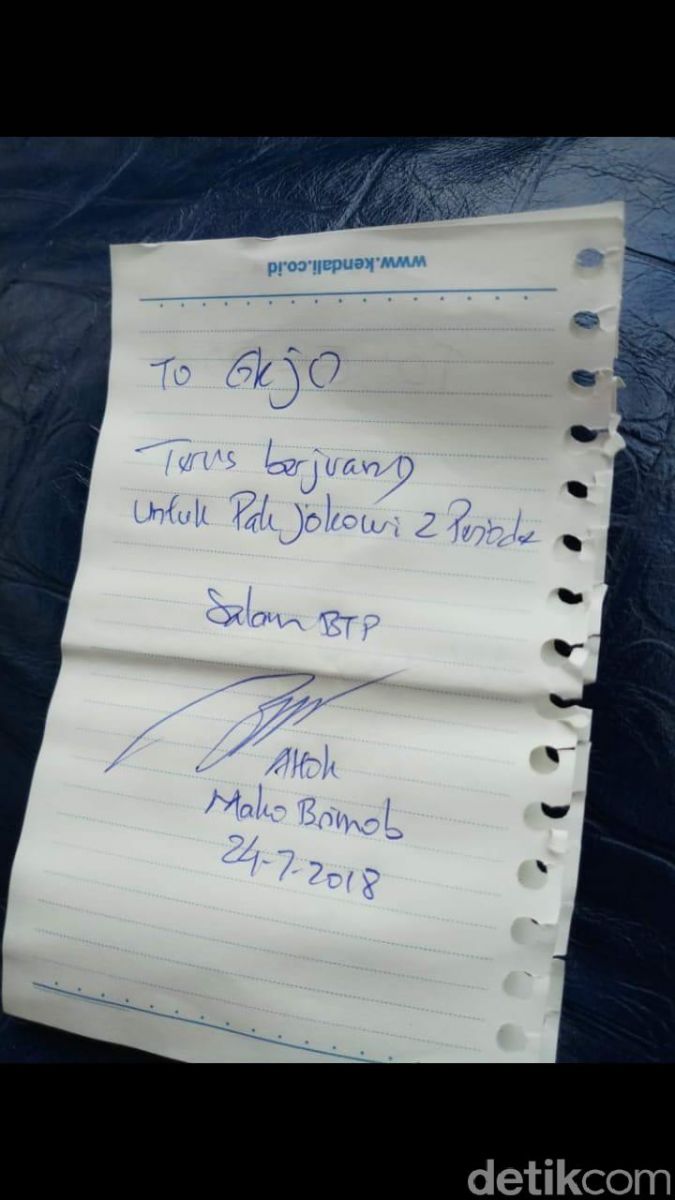 www.kendali.co.id
To GkjO
Terus berjuang
untuk Pak jokowi 2 Periode
Salam BTP
AHok
Mako Brimob
24-7-2018
detikcom